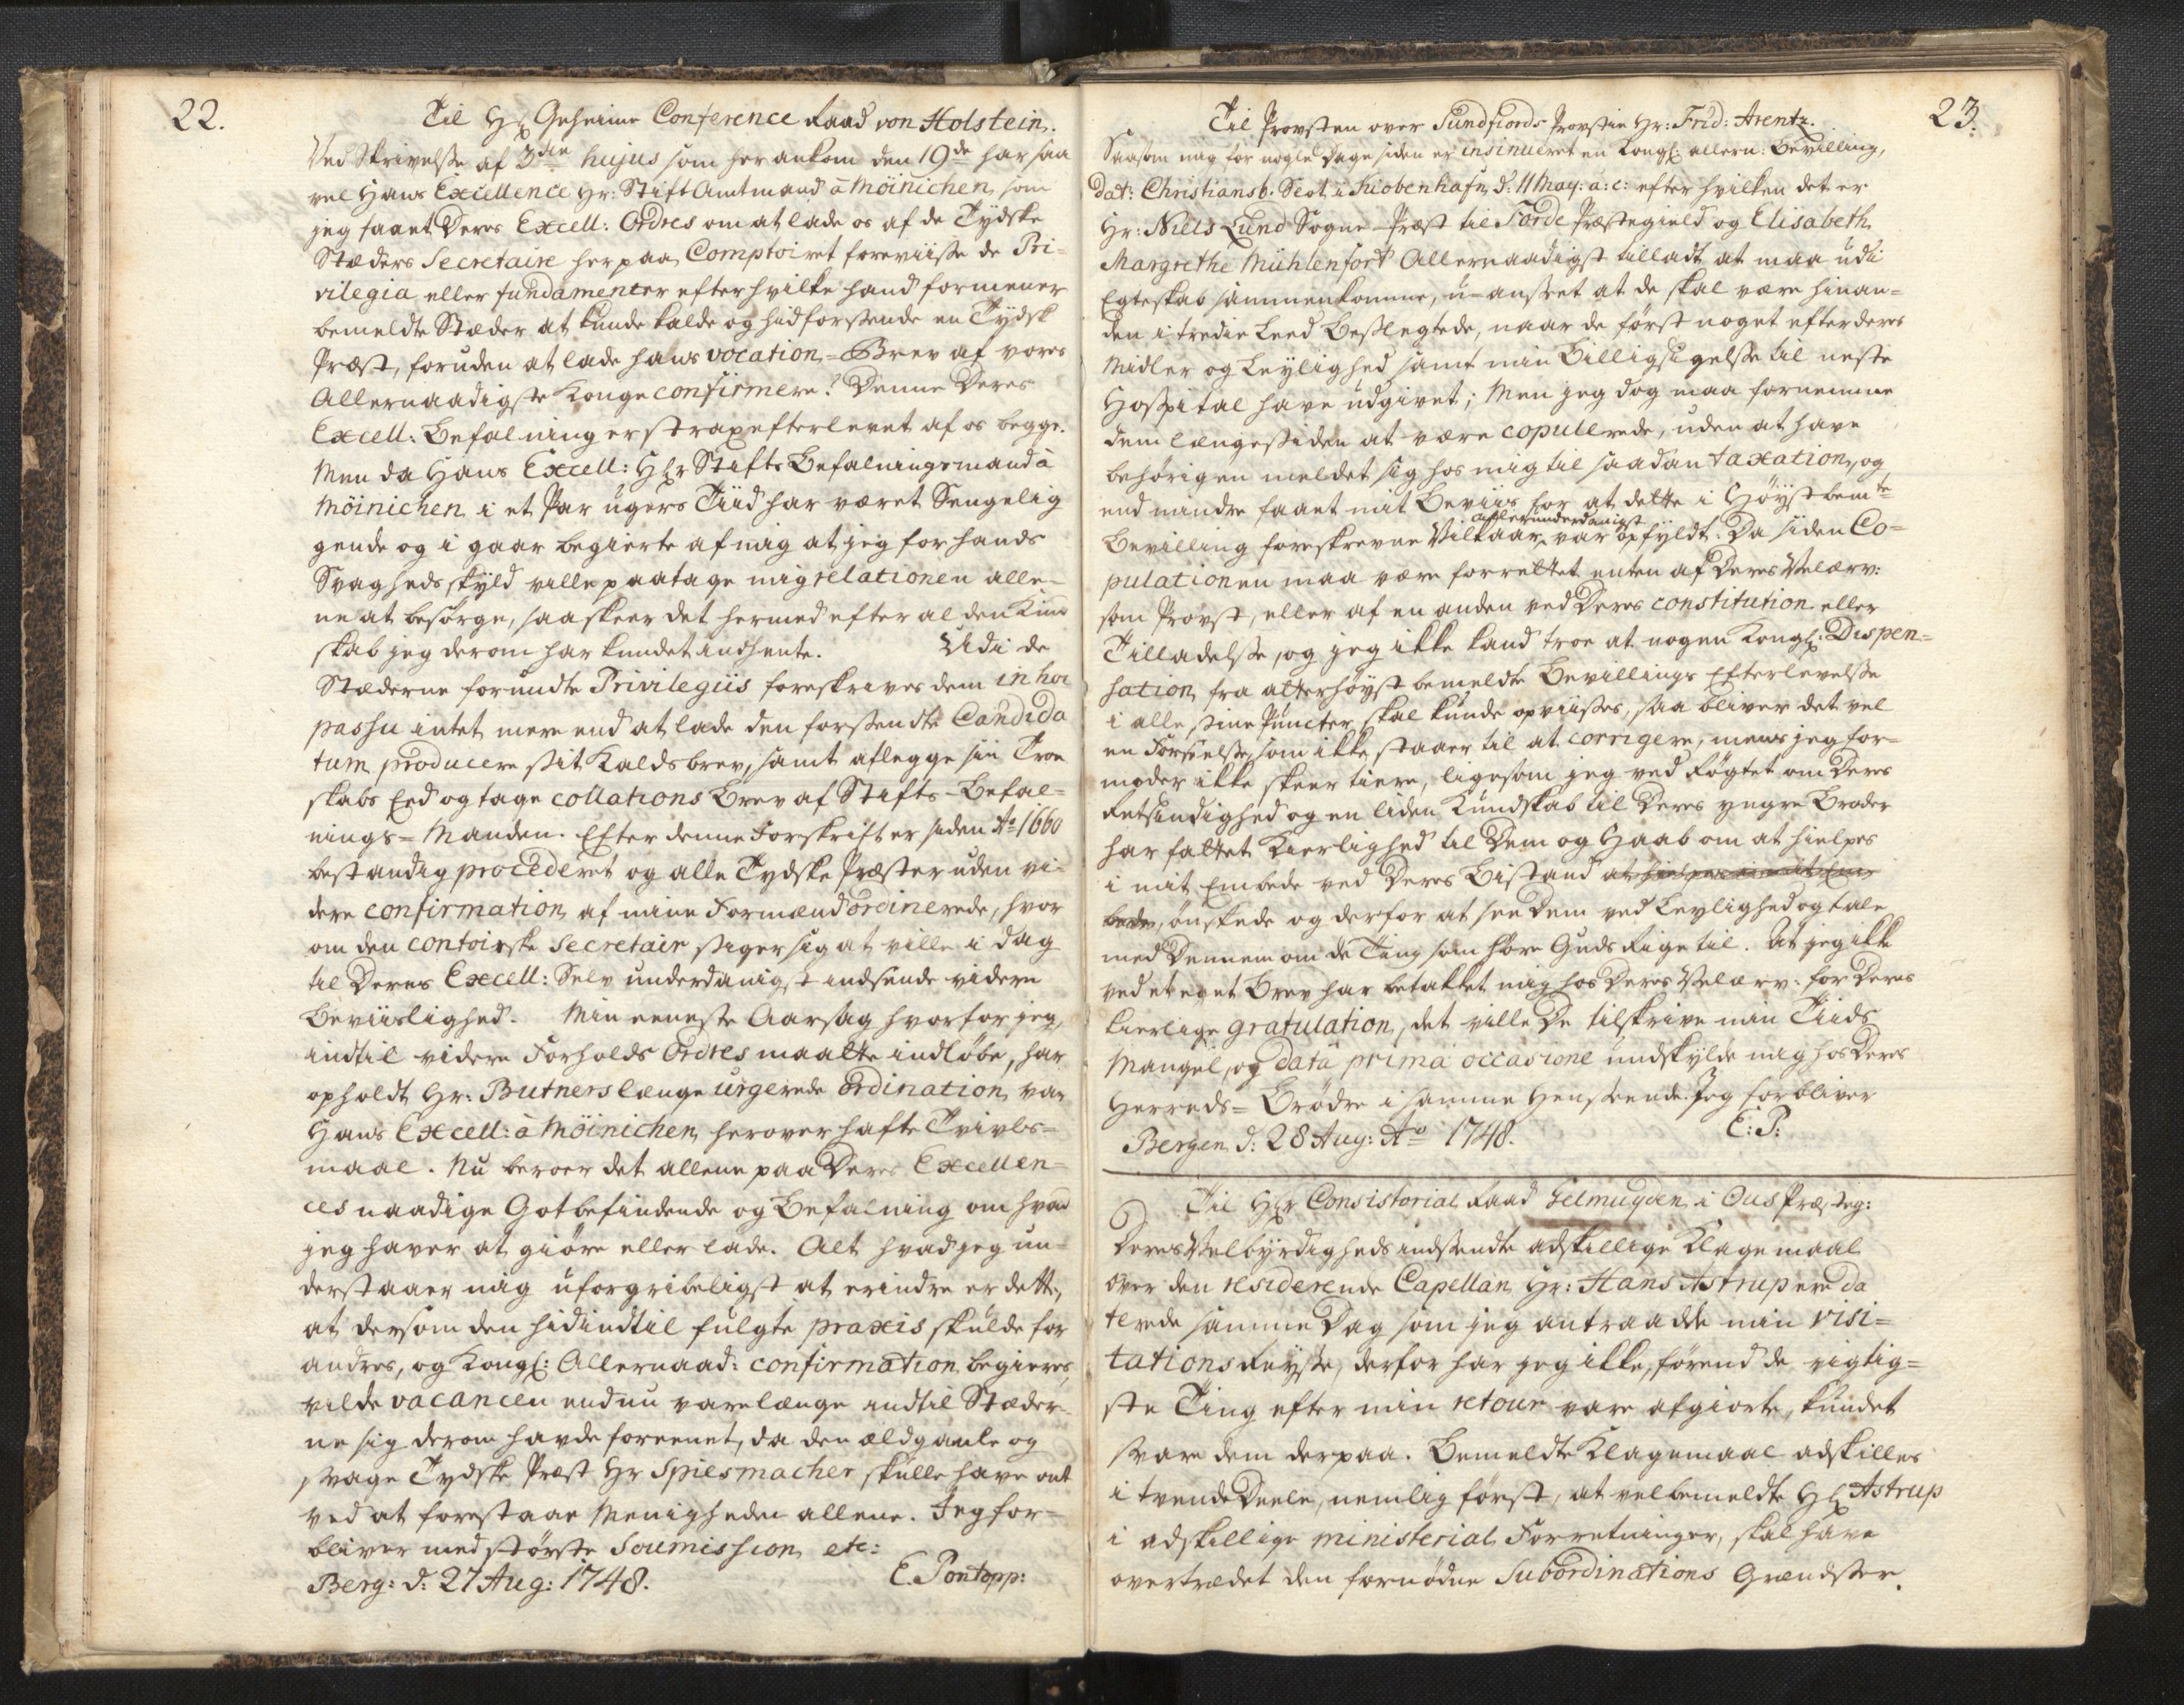 22.
Til Hr Geheime Conference Raad von Holstein.
Ved Skrivelsse af 3die hujus som her ankom den 19de har saa
vel Hans Excellence Hr: Stift Amtmand à Möinichen, som
jeg faaet Deres Excell: Ordres om at lade os af de Tydske
Stæders Secretaire her paa Comptoiret foreviisse de Pri-
vilegia eller fundamenter efter hvilke hand formener
bemeldte Stæder at kunde kalde og hidforsende en Tydsk
Præst, foruden at lade hans vocation-Brev af vores
Allernaadigste Konge confirmere? Denne Deres
Excell: Befalning er strax efterlevet af os begge.
Men da Hans Excell: Hr Stifts Befalningsmand à
Möinichen i et Par ugers Tiid har været Sengelig
gende og i gaar begierte af mig at jeg for hands
Svagheds skyld ville paatage mig relationen alle-
ne at besörge, saa skeer det hermed efter al den Kund
skab jeg derom har kundet indhente. Udi de
Stæderne forundte Privilegiis foreskrives dem in hoc
passu intet mere end at lade den forsendte Candida
tum producere sit Kaldsbrev, samt aflegge sin Troe
skabs Eed og tage collations Brev af Stifts-Befal-
nings-Manden. Efter denne Forskrift er siden Ao 1660
bestandig procederet og alle Tydske Præster uden vi-
dere confirmation af mine Formænd ordinerede, hvor
om den contoirske Secretair siger sig at ville i dag
til Deres Excell: Selv underdanigst indsende videre
Beviislighed. Min eeneste Aarsag hvorfor jeg,
indtil videre Forholds Ordres maatte indløbe, har
opholdt Hr: Butners længe urgerede ordination, var
Hans Excell: à Möinichen herover hafte Tvivls-
maal. Nu beroer det allene paa Deres Excellen-
ces naadige Gotbefindende og Befalning om hvad
jeg haver at giöre eller lade. Alt hvad jeg un-
derstaaer mig uforgribeligst at erindre er dette,
at dersom den hidindtil fulgte praxis skulde for
andres, og Kongl: Allernaad: confirmation begieres,
vilde vacancen endnu vare længe indtil Stæder-
ne sig derom havde foreenet, da den ældgamle og
svage Tydske Præst Hr Spiesmacher skulle have ont
ved at forestaae Menigheden allene. Jeg for-
bliver med störste Soumission etc:
Berg: d: 27 Aug: 1748. E. Pontopp:
23.
Til Provsten over Sundfiords Provstie Hr: Frid: Arentz.
Saasom mig for nogle Dage siden er insinueret en Kongl: allern: Bevilling,
dat: Christiansb: Slot i Kiobenhafn d: 11 May: a: c: efter hvilken det er
Hr: Niels Lund Sogne-Præst til Förde Præstegield og Elisabeth
Margrethe Mühlenfort Allernaadigst tilladt at maa udi
Egteskab sammenkomme, u-anseet at de skal være hinan-
den i tredie Leed Beslegtede, naar de först noget efter deres
Midler og Leylighed samt min Billigsigelsse til neste
Hospital have udgivet; Men jeg dog maa fornemme
dem længe siden at være copulerede, uden at have
behörigen meldet sig hos mig til saadan taxation, og
end mindre faaet mit Beviis for at dette i Höystbemte
Bevilling foreskrevne Vilkaar allerunderdanigst var opfyldt. Da siden Co-
pulationen maa være forrettet enten af Deres Velærv:
som Provst, eller af en anden ved Deres constitution eller
Tilladelsse, og jeg ikke kand troe at nogen Kongl: Dispen-
sation fra allerhöyst bemeldte Bevillings Efterlevelsse
i alle sine Puncter skal kunde opviisses, saa bliver det vel
en Forseelse, som ikke staaer til at corrigere, mens jeg for-
moder ikke skeer tiere, ligesom jeg ved Rögtet om Deres
Retsindighed og en liden Kundskab til Deres yngre Broder
har fattet Kierlighed til Dem og Haab om at hielpes
i mit Embede ved Deres Bistand at hielpes i mit Em-
bede, önskede og derfor at see Dem ved Leylighed og tale
med Dennem om de Ting som höre Guds Rige til. At jeg ikke
ved et eget Brev har betakket mig hos Deres Velærv: for Deres
kierlige gratulation, det ville De tilskrive min Tiids
Mangel, og data prima occasione undskylde mig hos Deres
Herreds-Brödre i samme Henseende. Jeg forbliver
Bergen d: 28 Aug: Ao 1748. E: P:
Til Hr Consistorial Raad Gelmuyden i Ous Præsteg:
Deres Velbyrdigheds indsendte adskillige Klagemaal
over den residerende Capellan Hr: Hans Astrup ere da
terede samme Dag som jeg antraadde min visi-
tations Reysse, derfor har jeg ikke, förend de vigtig-
ste Ting efter min retour vare afgiorte, kundet
svare dem derpaa. Bemeldte Klagemaal adskilles
i tvende Deele, nemlig först, at velbemeldte Hr Astrup
i adskillige ministerial Forretninger, skal have
overtrædet den fornödne Subordinations Grændsser.